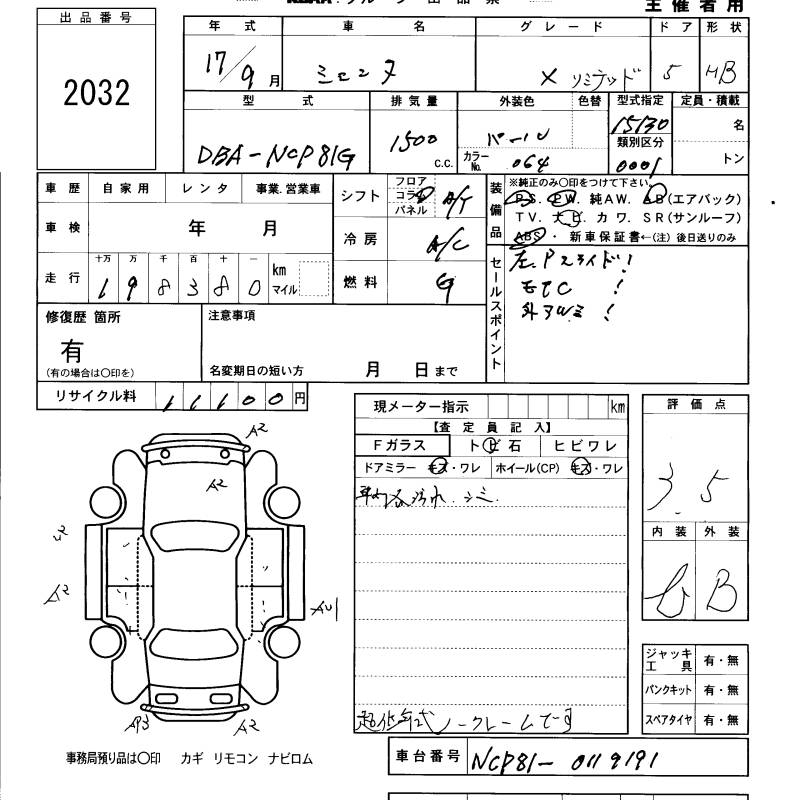 主催者用
出品番号
2032
年式 車名 グレード ドア 形状
17/9月 シエンタ X リミテッド 5 HB
型式 排気量 外装色 色替 型式指定 定員・積載
DBA-NCP81G 1500 c.c. パール 15130 名
類別区分
カラーNo. 064 0001 トン
車歴 自家用 レンタ 事業.営業車
シフト フロア コラム パネル A/T
装備品 ※純正のみ〇印をつけて下さい。
P.S. P.W. 純AW. AB(エアバック)
TV. ナビ. カワ. SR(サンルーフ)
ABS・ 新車保証書←(注) 後日送りのみ
車検 年 月
冷房 A/C
走行 十万 万 千 百 十 一 km マイル
198380
燃料 G
セールスポイント
左Pスライド!
ETC !
外アルミ !
修復歴 箇所
有
(有の場合は〇印を)
注意事項
名変期日の短い方 月 日まで
リサイクル料 11100円
現メーター指示 km
【査定員記入】
Fガラス トビ石 ヒビワレ
ドアミラー キズ・ワレ ホイール(CP) キズ・ワレ
車内汚れ.シミ.
評価点
3.5
内装 外装
B
A2
A2
A2
AU1
AP3
A2
ジャッキ工具 有・無
パンクキット 有・無
スペアタイヤ 有・無
低年式ノークレームです
事務局預り品は〇印 カギ リモコン ナビロム
車台番号 NCP81-0119191